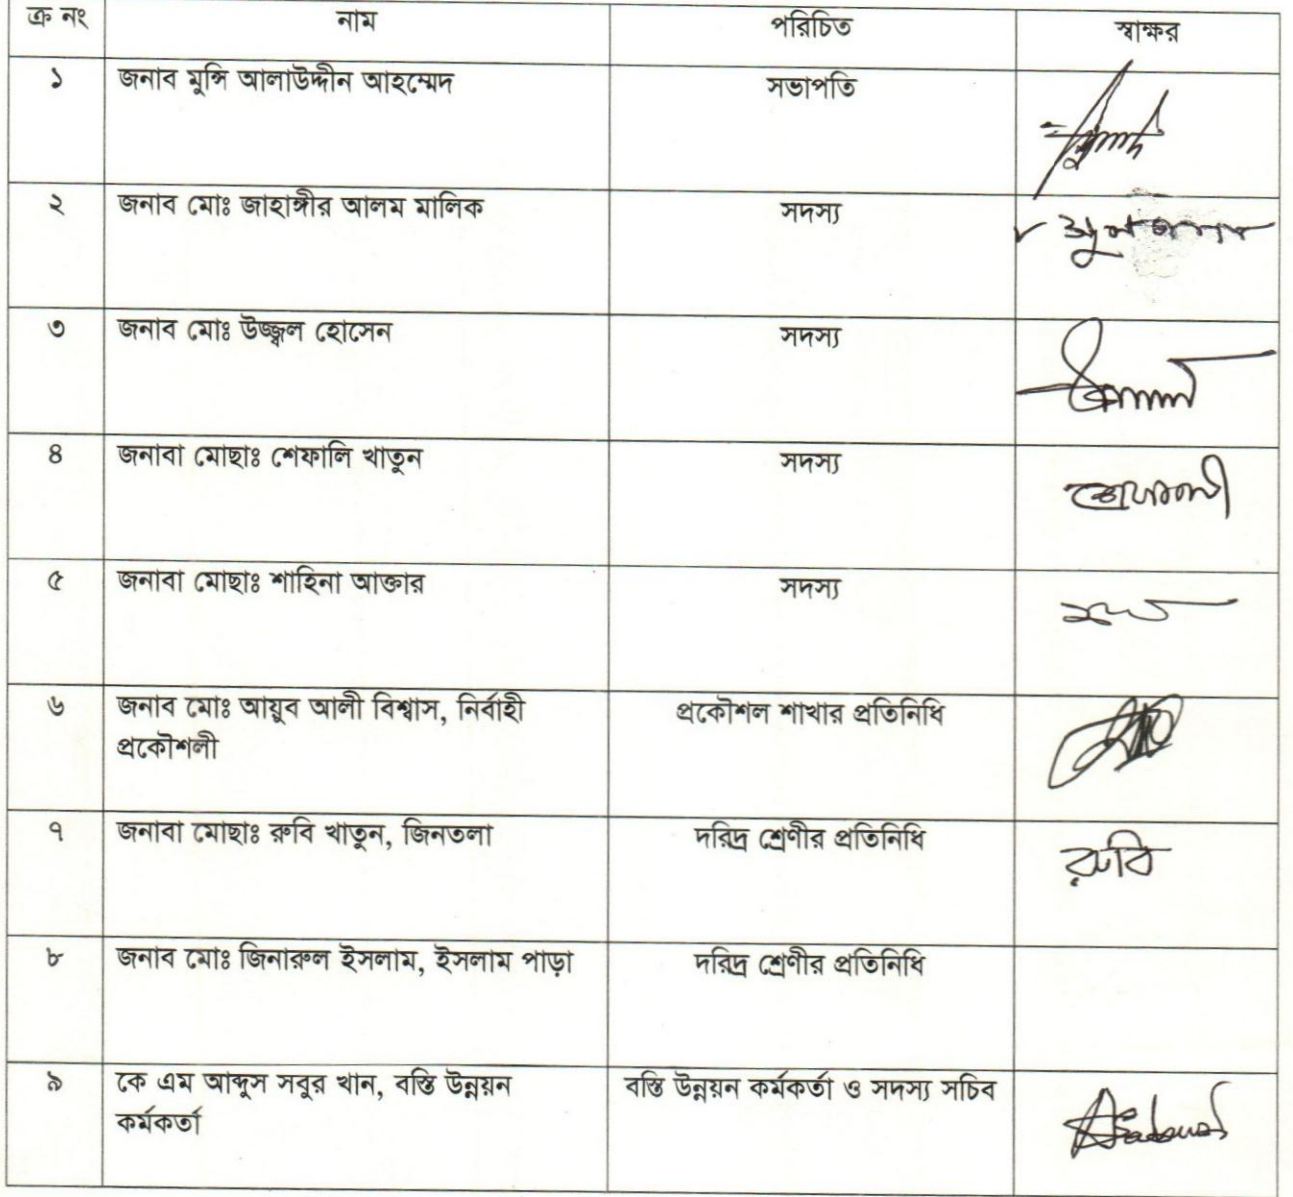 ক্র নং নাম পরিচিত স্বাক্ষর
১ জনাব মুন্সি আলাউদ্দীন আহম্মেদ সভাপতি
২ জনাব মোঃ জাহাঙ্গীর আলম মালিক সদস্য
৩ জনাব মোঃ উজ্জ্বল হোসেন সদস্য
৪ জনাবা মোছাঃ শেফালি খাতুন সদস্য
৫ জনাবা মোছাঃ শাহিনা আক্তার সদস্য
৬ জনাব মোঃ আয়ুব আলী বিশ্বাস, নির্বাহী প্রকৌশল শাখার প্রতিনিধি
প্রকৌশলী
৭ জনাবা মোছাঃ রুবি খাতুন, জিনতলা দরিদ্র শ্রেণীর প্রতিনিধি রুবি
৮ জনাব মোঃ জিনারুল ইসলাম, ইসলাম পাড়া দরিদ্র শ্রেণীর প্রতিনিধি
৯ কে এম আব্দুস সবুর খান, বস্তি উন্নয়ন বস্তি উন্নয়ন কর্মকর্তা ও সদস্য সচিব
কর্মকর্তা